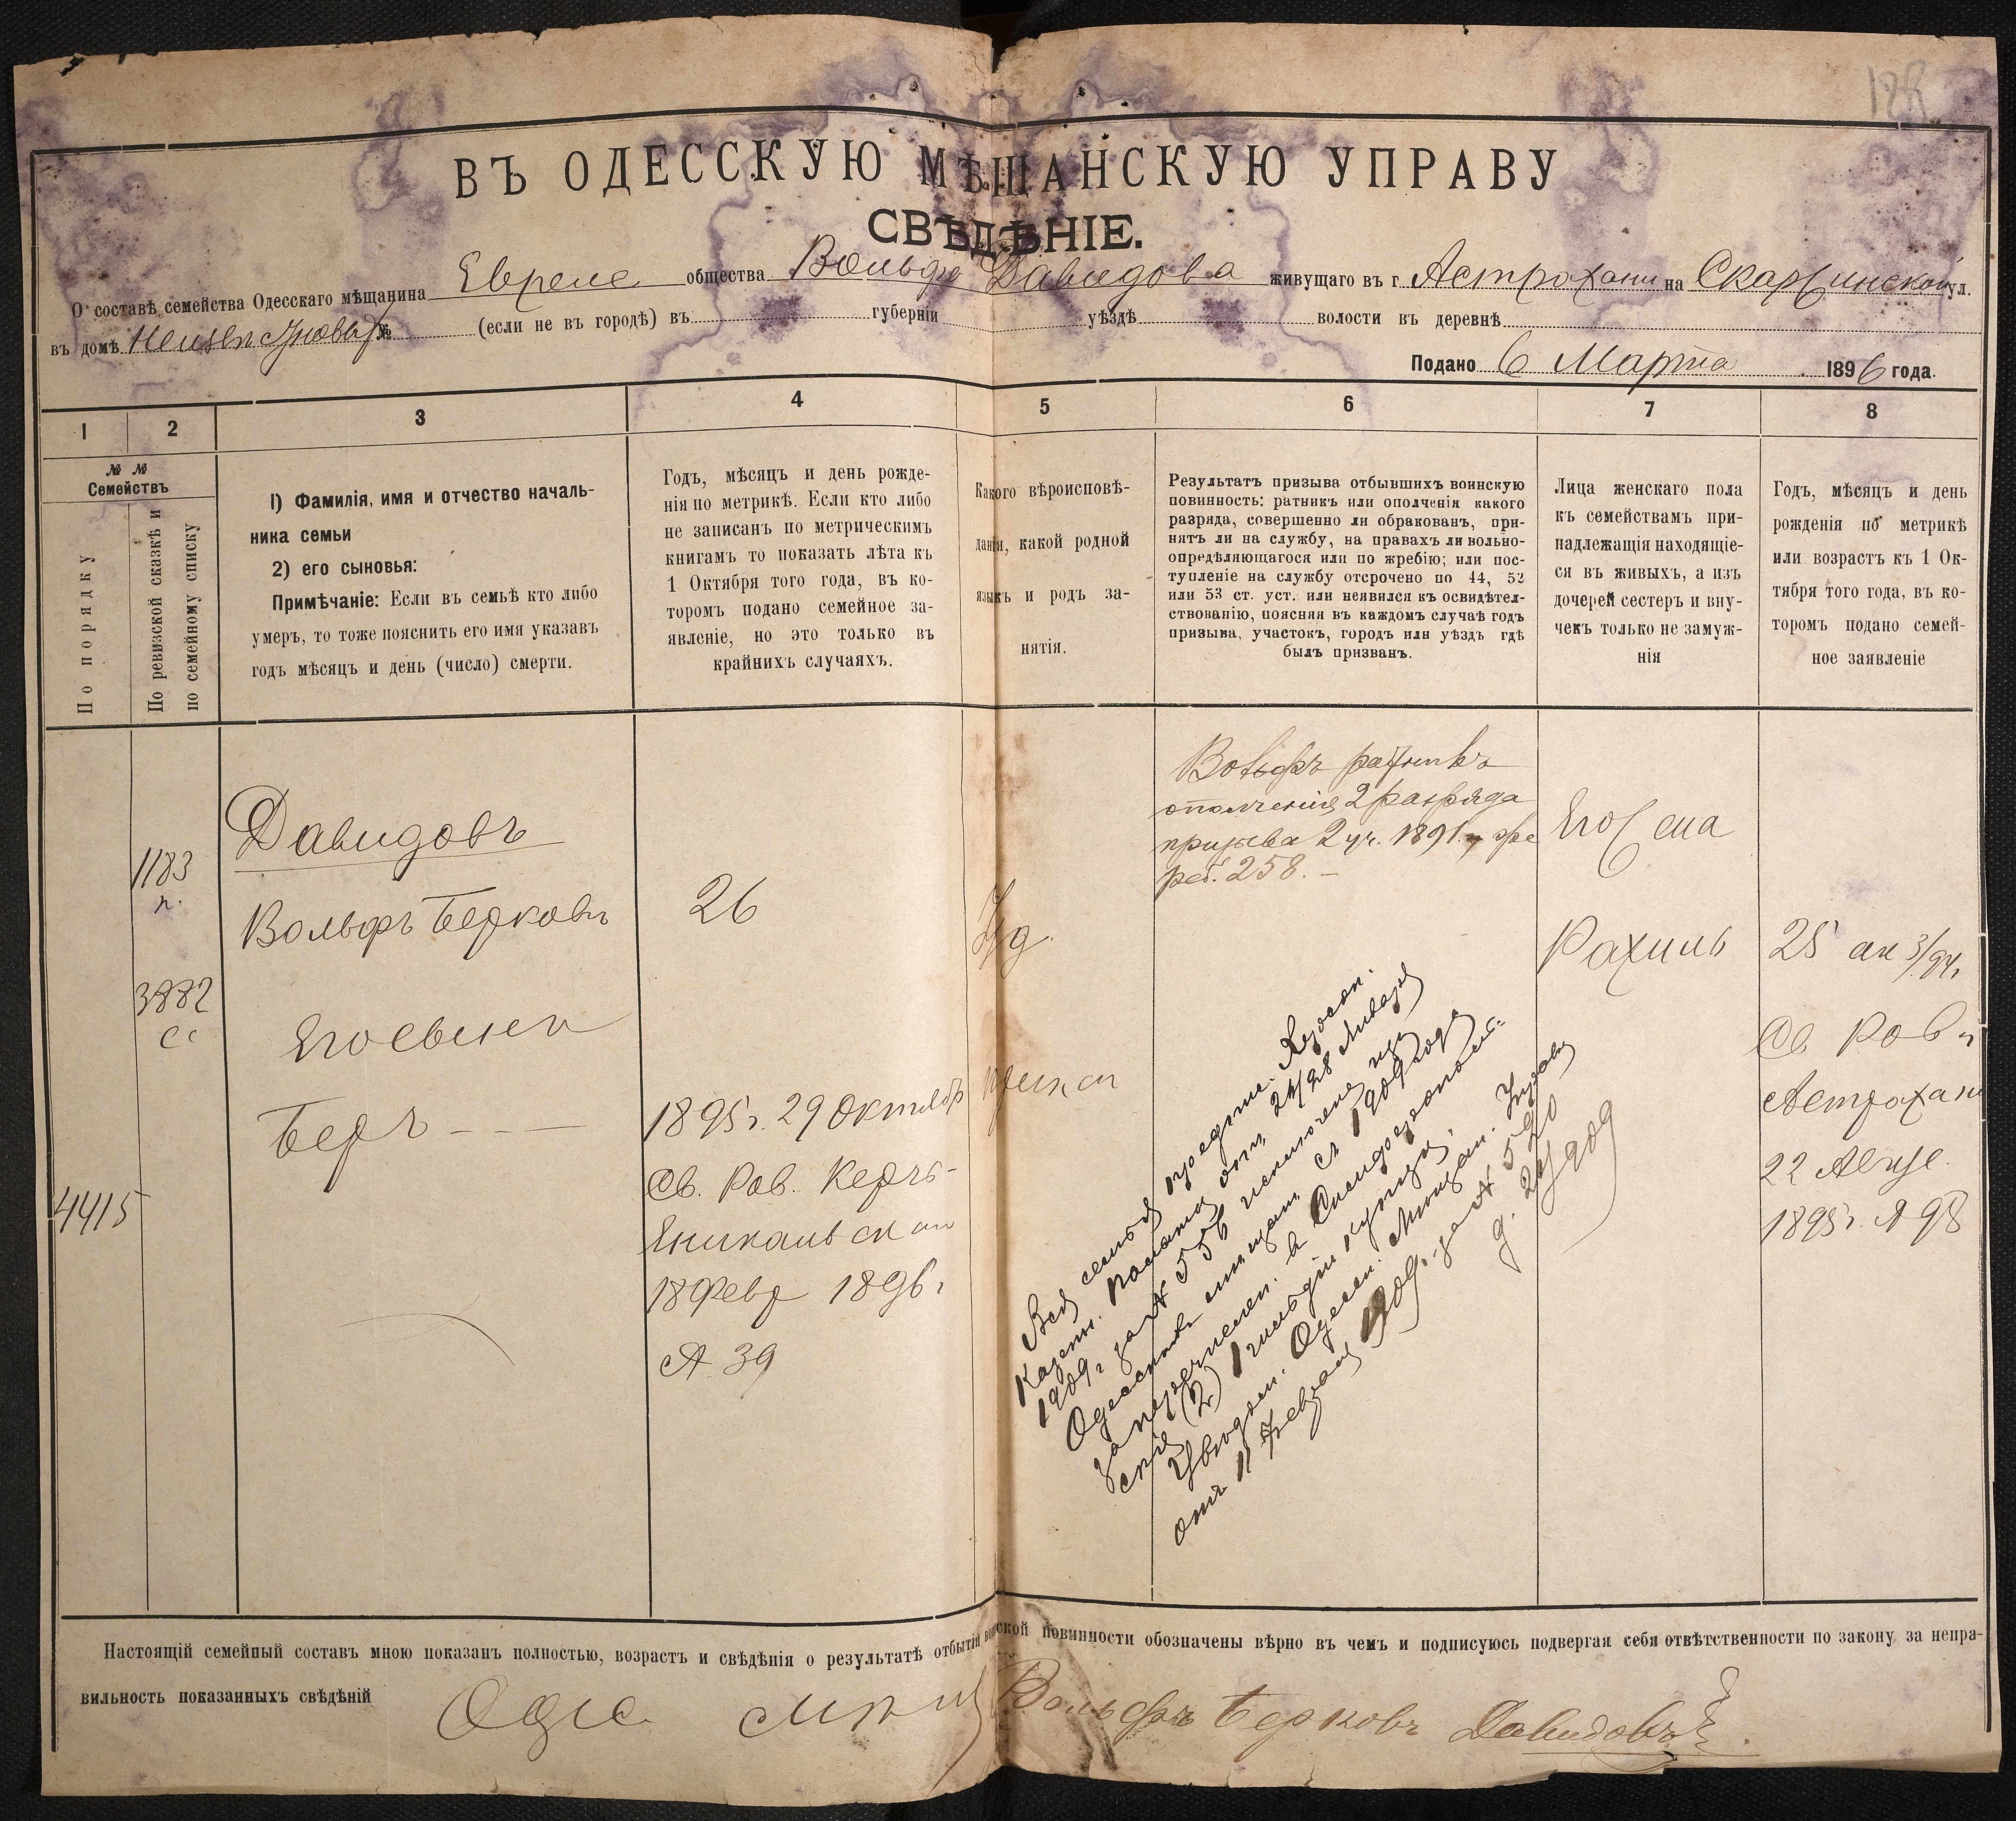 ВЪ ОДЕССКУЮ МѢЩАНСКУЮ УПРАВУ
СВѢДѢНІЕ.
О составѣ семейства Одесскаго мѣщанина Евреис общества Вольфа Давидова живущаго въ г. Астрахани на ул.
въ домѣ № (если не въ городѣ) въ губерніи уѣздѣ волости въ деревнѣ
Подано 6 Марта 1896 года.
1 2 3 4 5 6 7 8
№ №
Семействъ
По порядку
По ревизской сказкѣ и
по семейному списку
1) Фамилія, имя и отчество началь-
ника семьи
2) его сыновья:
Примѣчаніе: Если въ семьѣ кто либо
умеръ, то тоже пояснить его имя указавъ
годъ мѣсяцъ и день (число) смерти.
Годъ, мѣсяцъ и день рожде-
нія по метрикѣ. Если кто либо
не записанъ по метрическимъ
книгамъ то показать лѣта къ
1 Октября того года, въ ко-
торомъ подано семейное за-
явленіе, но это только въ
крайнихъ случаяхъ.
Какого вѣроисповѣ-
данія, какой родной
языкъ и родъ за-
нятія.
Результатъ призыва отбывшихъ воинскую
повинность: ратникъ или ополченія какого
разряда, совершенно ли обракованъ, при-
нятъ ли на службу, на правахъ ли вольно-
опредѣляющагося или по жребію; или пос-
тупленіе на службу отсрочено по 44, 52
или 53 ст. уст. или неявился къ освидѣтел-
ствованію, поясняя въ каждомъ случаѣ годъ
призыва, участокъ, городъ или уѣздъ гдѣ
былъ призванъ.
Лица женскаго пола
къ семействамъ при-
надлежащія находящіе-
ся въ живыхъ, а изъ
дочерей сестеръ и вну-
чекъ только не замуж-
нія
Годъ, мѣсяцъ и день
рожденія по метрикѣ
или возрастъ къ 1 Ок-
тября того года, въ ко-
торомъ подано семей-
ное заявленіе
1183
п.
3882
сс
4415
Давидовъ
Вольфъ Берковъ
Его сынъ
Беръ
26
1895 г. 29 Октября
Св. Рав. Керчь-
Еникальск
18 Февр 1896 г
№ 39
Іуд.
Вольфъ ратникъ
ополченія 2 разряда
призыва 2 уч. 1891 г.
258.
Вся семья предпис. Херсон.
Казен. Палаты отъ 24/28 Января
1909 г за № 556 исключена изъ
Одесскихъ мѣщанъ съ 1909 года
за перечислен. въ Симферополь-
скіе (2) 1 гильдіи купцы.
Увѣдом. Одесск. Мѣщан. Управу
отъ 11 Февраля 1909 г. за № 590
Его жена
Рахиль
25
Св. Рав.
Астрахани
22 Авг.
1895 г. № 98
Настоящій семейный составъ мною показанъ полностью, возрастъ и свѣдѣнія о результатѣ отбытія воинской повинности обозначены вѣрно въ чемъ и подписуюсь подвергая себя отвѣтственности по закону за непра-
вильность показанныхъ свѣдѣній
Вольфъ Берковъ Давидовъ